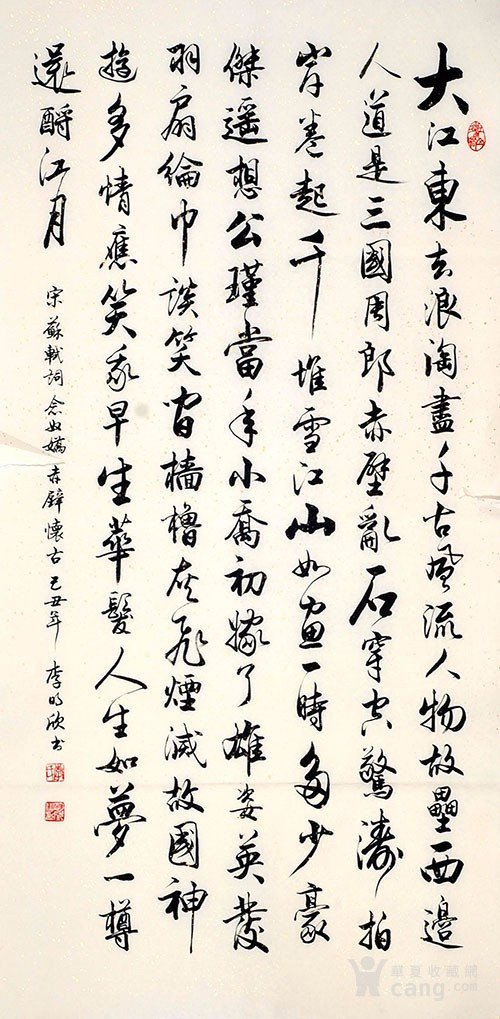 大江東去浪淘盡千古風流人物故壘西邊
人道是三國周郎赤壁亂石穿空驚濤拍
岸卷起千堆雪江山如畫一時多少豪
傑遥想公瑾當年小喬初嫁了雄姿英發
羽扇綸巾談笑間檣櫓灰飛煙滅故國神
遊多情應笑我早生華髮人生如夢一樽
還酹江月
宋蘇軾詞念奴嬌赤壁懷古己丑年李明欣书
華夏收藏網
cang.com